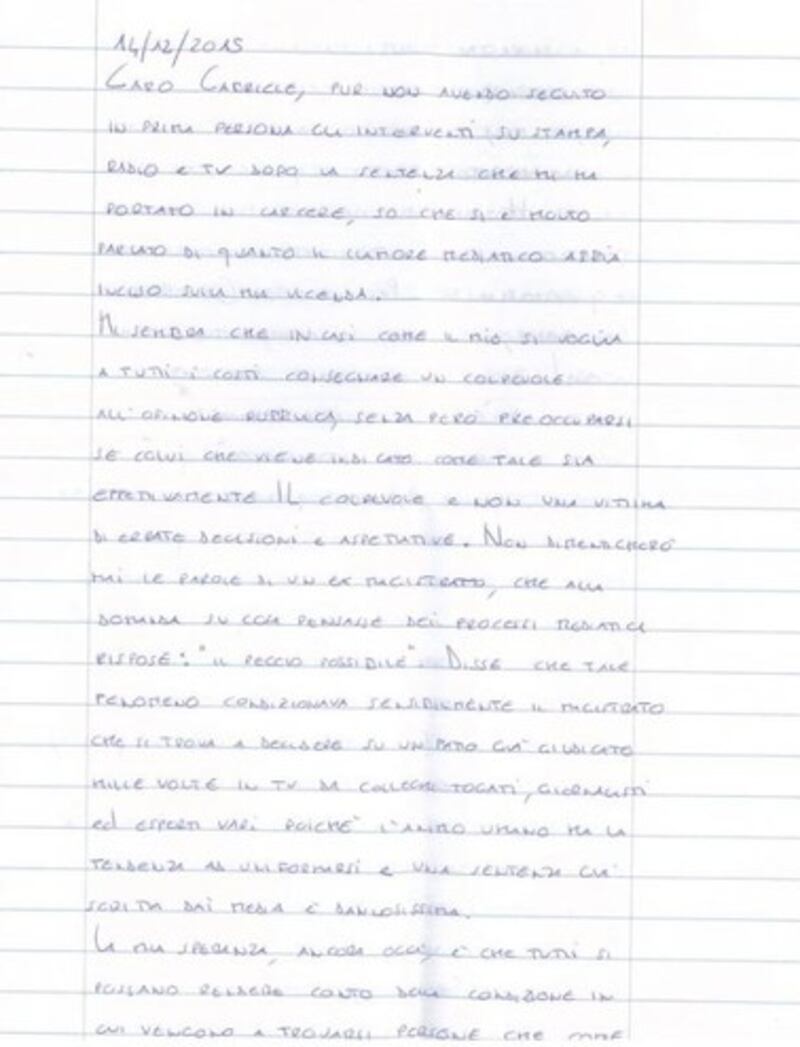 14/12/2015
CARO GABRIELE, PUR NON AVENDO SEGUITO
IN PRIMA PERSONA GLI INTERVENTI SU STAMPA,
RADIO E TV DOPO LA SENTENZA CHE MI HA
PORTATO IN CARCERE, SO CHE SI È MOLTO
PARLATO DI QUANTO IL CLAMORE MEDIATICO ABBIA
INCISO SULLA MIA VICENDA.
MI SEMBRA CHE IN CASI COME IL MIO SI VOGLIA
A TUTTI I COSTI CONSEGNARE UN COLPEVOLE
ALL'OPINIONE PUBBLICA, SENZA PERÒ PREOCCUPARSI
SE COLUI CHE VIENE INDICATO COME TALE SIA
EFFETTIVAMENTE IL COLPEVOLE E NON UNA VITTIMA
DI ERRATE DECISIONI E ASPETTATIVE. NON DIMENTICHERÒ
MAI LE PAROLE DI UN EX MAGISTRATO, CHE ALLA
DOMANDA SU COSA PENSASSE DEI PROCESSI MEDIATICI
RISPOSE: "IL PEGGIO POSSIBILE". DISSE CHE TALE
FENOMENO CONDIZIONAVA SENSIBILMENTE IL MAGISTRATO
CHE SI TROVA A DECIDERE SU UN FATTO GIÀ GIUDICATO
MILLE VOLTE IN TV DA COLLEGHI TOGATI, GIORNALISTI
ED ESPERTI VARI POICHÈ L'ANIMO UMANO HA LA
TENDENZA AD UNIFORMARSI E UNA SENTENZA GIÀ
SCRITTA DAI MEDIA È DANNOSISSIMA.
LA MIA SPERANZA, ANCORA OGGI, È CHE TUTTI SI
POSSANO RENDERE CONTO DELLA CONDIZIONE IN
CUI VENGONO A TROVARSI PERSONE CHE COME